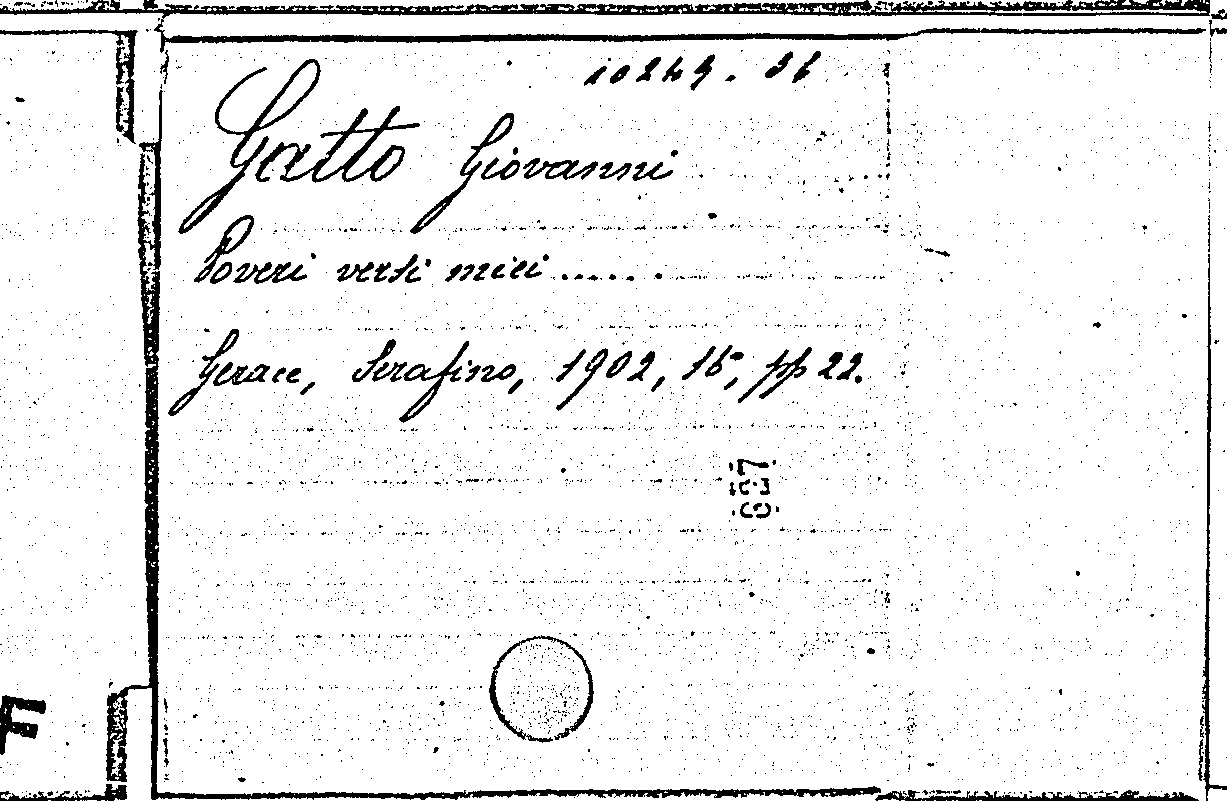 10249. 36
Gatto Giovanni
Poveri versi miei ......
Gerace, Serafino, 1902, 16°, pp 22.
657